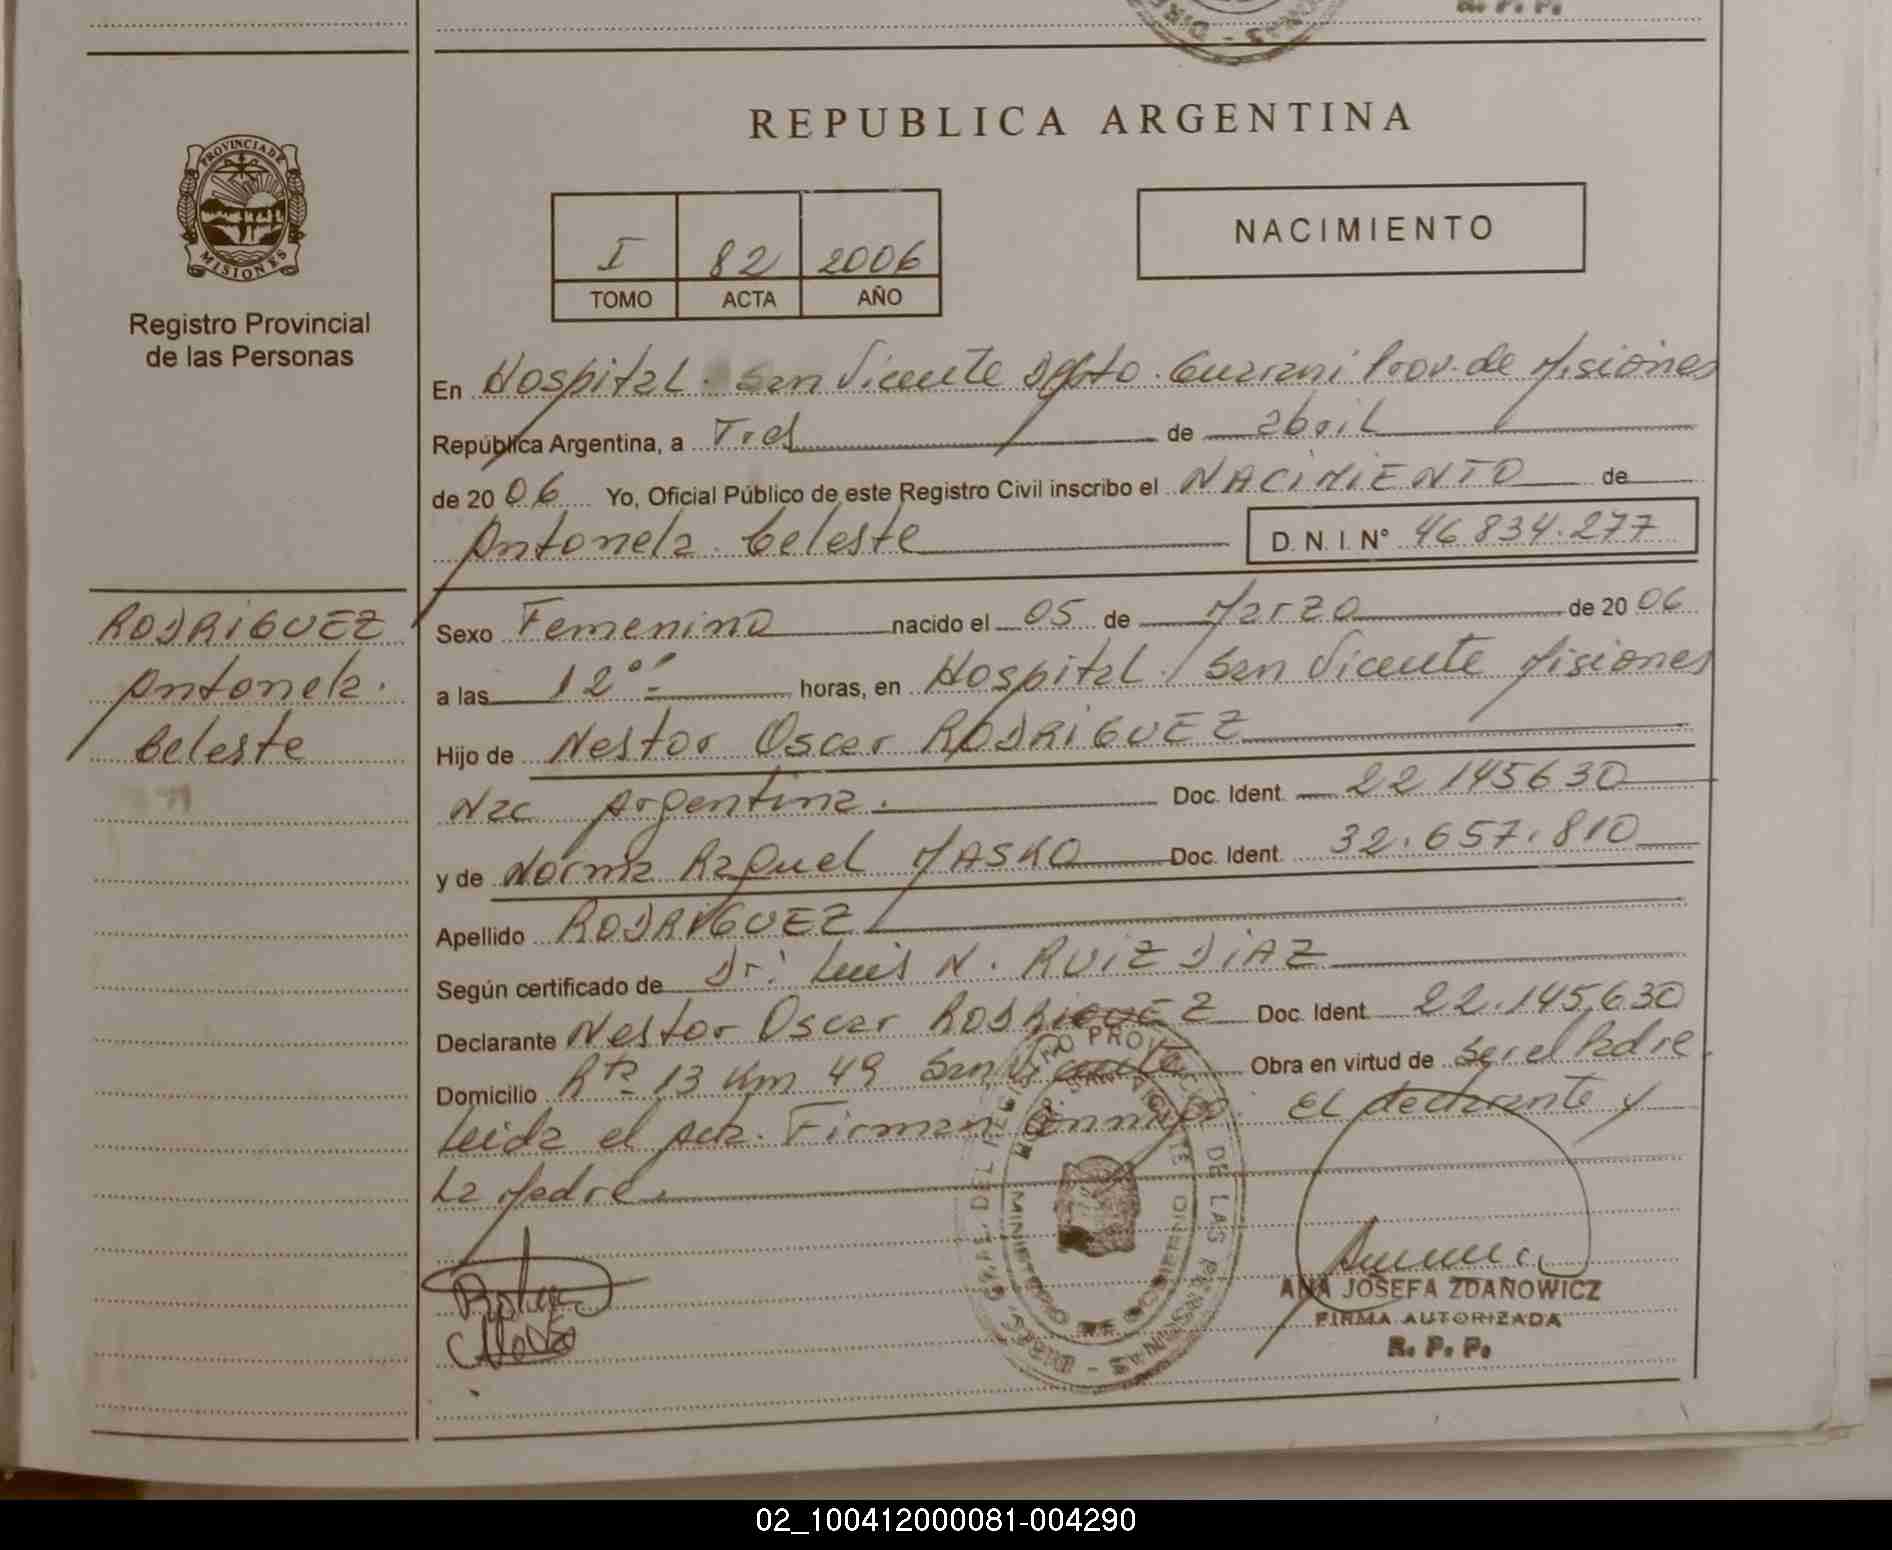 R. P. P.
REPUBLICA ARGENTINA
PROVINCIA DE
MISIONES
Registro Provincial
de las Personas
I 82 2006
TOMO ACTA AÑO
NACIMIENTO
En Hospital San Vicente Dpto. Guarani Prov. de Misiones
República Argentina, a Tres de abril
de 2006 Yo, Oficial Público de este Registro Civil inscribo el NACIMIENTO de
Antonela Celeste D. N. I. N° 46.834.277
RODRIGUEZ
Antonela
Celeste
Sexo Femenino nacido el 05 de Marzo de 2006
a las 12 horas, en Hospital San Vicente Misiones
Hijo de Nestor Oscar RODRIGUEZ
Nac Argentina. Doc. Ident. 22 145630
y de Norma Raquel MASKO Doc. Ident. 32.657.810
Apellido RODRIGUEZ
Según certificado de Dr: Luis N. RUIZ DIAZ
Declarante Nestor Oscar RODRIGUEZ Doc. Ident. 22.145.630
Domicilio Rta 13 Km 49 San Vicente Obra en virtud de ser el Padre.
Leida el Acta. Firman Conmigo: El declarante y
La Madre.
ANA JOSEFA ZDANOWICZ
FIRMA AUTORIZADA
R. P. P.
02_100412000081-004290